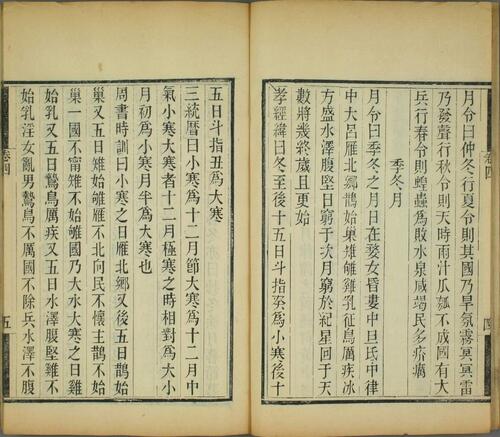 月令曰仲冬行夏令則其國乃旱氛霧冥冥雷
乃發聲行秋令則天時雨汁瓜瓠不成國有大
兵行春令則蝗蟲為敗水泉咸竭民多疥癘
季冬月
月令曰季冬之月日在婺女昏婁中旦氐中律
中大呂雁北鄉鵲始巢雉雊雞乳征鳥厲疾冰
方盛水澤腹堅日窮于次月窮於紀星回于天
數將幾終歲且更始
孝經緯曰冬至後十五日斗指癸為小寒後十
卷四
四
五日斗指丑為大寒
三統曆曰小寒為十二月節大寒為十二月中
氣小寒大寒者十二月極寒之時相對為大小
月初為小寒月半為大寒也
周書時訓曰小寒之日雁北鄉又後五日鵲始
巢又五日雉始雊雁不北向民不懷主鵲不始
巢一國不甯雉不始雊國乃大水大寒之日雞
始乳又五日鷙鳥厲疾又五日水澤腹堅雞不
始乳淫女亂男鷙鳥不厲國不除兵水澤不腹
卷四
五